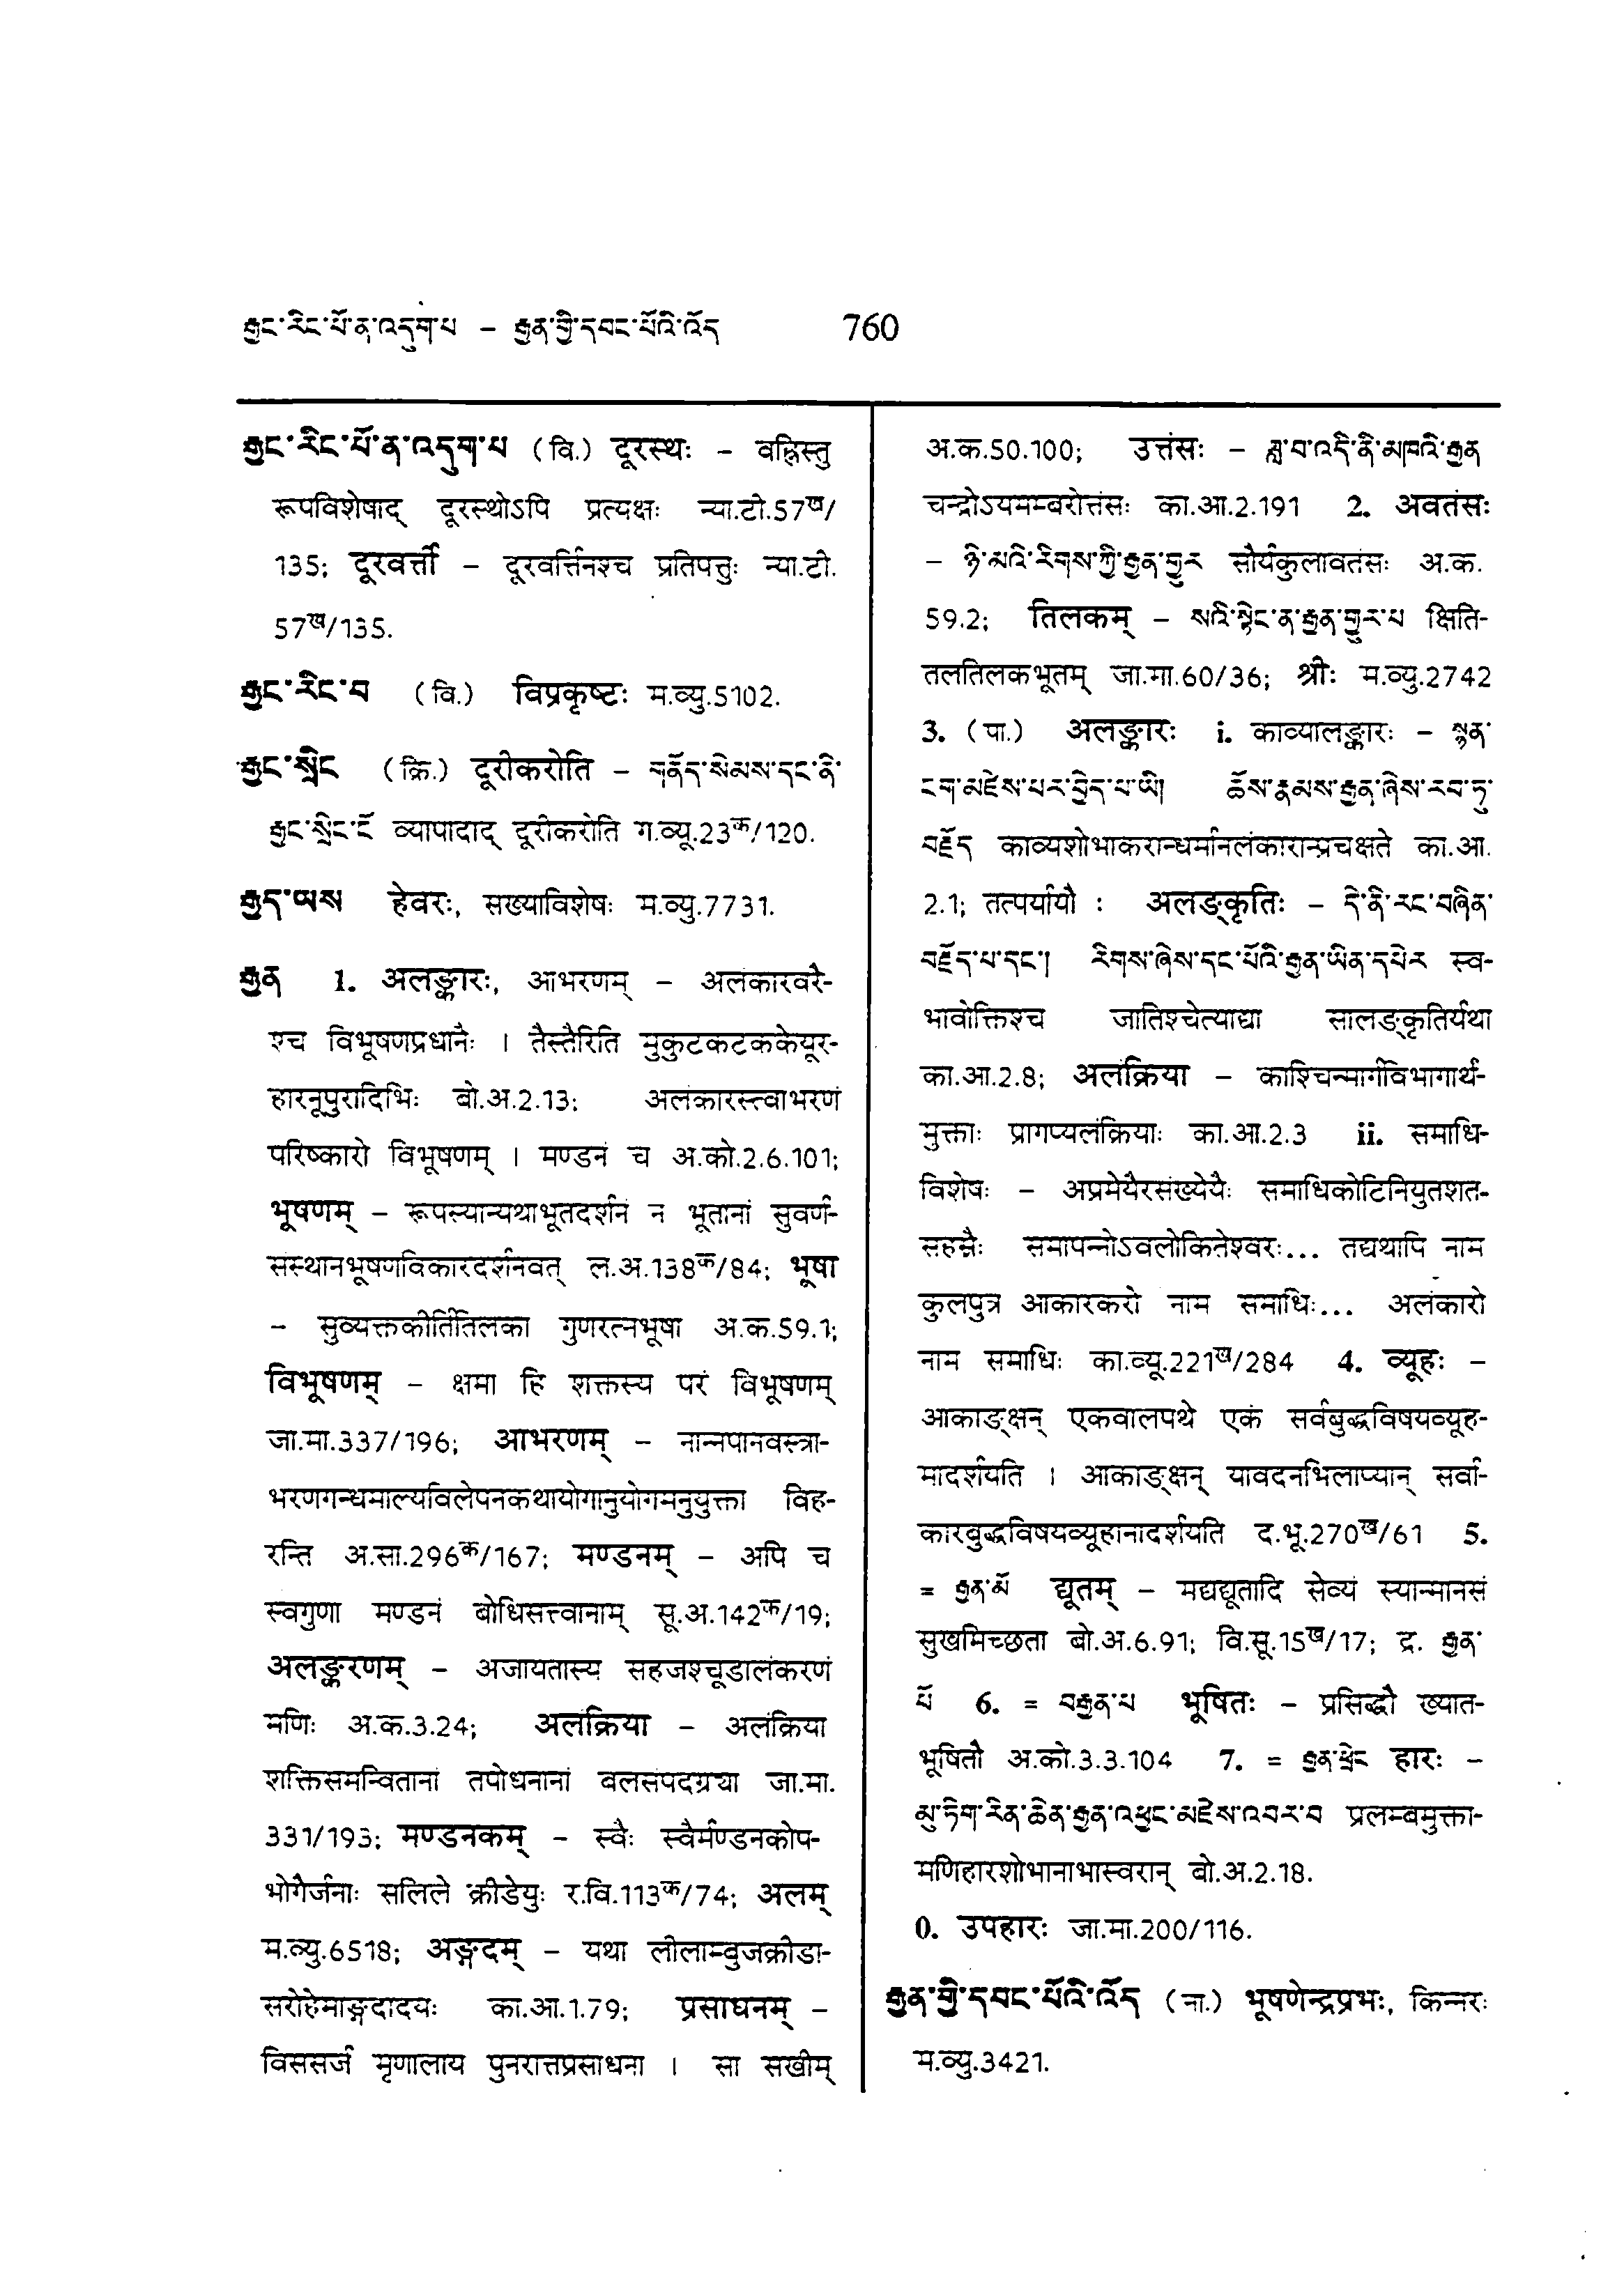 རྒྱང་རིང་པོ་ན་འདུག་པ – རྒྱན་གྱི་དབང་པོའི་འོད 760
རྒྱང་རིང་པོ་ན་འདུག་པ (वि.) दूरस्थः – वह्निस्तु
रूपविशेषाद् दूरस्थोऽपि प्रत्यक्षः न्या.टी.57ख/
135; दूरवर्त्ती – दूरवर्त्तिनश्च प्रतिपत्तुः न्या.टी.
57ख/135.
རྒྱང་རིང་བ (वि.) विप्रकृष्टः म.व्यु.5102.
རྒྱང་སྲིང (क्रि.) दूरीकरोति – གནོད་སེམས་དང་ནི་
རྒྱང་སྲིང་ངོ व्यापादाद् दूरीकरोति ग.व्यू.23क/120.
རྒྱད་ཡས हेवरः, सख्याविशेषः म.व्यु.7731.
རྒྱན 1. अलङ्कारः, आभरणम् – अलंकारवरै-
श्च विभूषणप्रधानैः । तैस्तैरिति मुकुटकटककेयूर-
हारनूपुरादिभिः बो.अ.2.13; अलंकारस्त्वाभरणं
परिष्कारो विभूषणम् । मण्डनं च अ.को.2.6.101;
भूषणम् – रूपस्यान्यथाभूतदर्शनं न भूतानां सुवर्ण-
संस्थानभूषणविकारदर्शनवत् ल.अ.138क/84; भूषा
– सुव्यक्तकीर्तितिलका गुणरत्नभूषा अ.क.59.1;
विभूषणम् – क्षमा हि शक्तस्य परं विभूषणम्
जा.मा.337/196; आभरणम् – नान्नपानवस्त्रा-
भरणगन्धमाल्यविलेपनकथायोगानुयोगमनुयुक्ता विह-
रन्ति अ.सा.296क/167; मण्डनम् – अपि च
स्वगुणा मण्डनं बोधिसत्त्वानाम् सू.अ.142क/19;
अलङ्करणम् – अजायतास्य सहजश्चूडालंकरणं
मणिः अ.क.3.24; अलंक्रिया – अलंक्रिया
शक्तिसमन्वितानां तपोधनानां बलसंपदग्र्या जा.मा.
331/193; मण्डनकम् – स्वैः स्वैर्मण्डनकोप-
भोगैर्जनाः सलिले क्रीडेयुः र.वि.113क/74; अलम्
म.व्यु.6518; अङ्गदम् – यथा लीलाम्बुजक्रीडा-
सरोहेमाङ्गदादयः का.आ.1.79; प्रसाधनम् –
विससर्ज मृणालाय पुनरात्तप्रसाधना । सा सखीम्
अ.क.50.100; उत्तंसः – ཟླ་བ་འདི་ནི་མཁའི་རྒྱན
चन्द्रोऽयमम्बरोत्तंसः का.आ.2.191 2. अवतंसः
– ཉི་མའི་རིགས་ཀྱི་རྒྱན་གྱུར सौर्यकुलावतंसः अ.क.
59.2; तिलकम् – སའི་སྟེང་ན་རྒྱན་གྱུར་པ क्षिति-
तलतिलकभूतम् जा.मा.60/36; श्रीः म.व्यु.2742
3. (पा.) अलङ्कारः i. काव्यालङ्कारः – སྙན་
ངག་མཛེས་པར་བྱེད་པ་ཡི། ཆོས་རྣམས་རྒྱན་ཞེས་རབ་ཏུ་
བརྗོད काव्यशोभाकरान्धर्मानलंकारान्प्रचक्षते का.आ.
2.1; तत्पर्यायौ : अलङ्कृतिः – དེ་ནི་རང་བཞིན་
བརྗོད་པ་དང་། རིགས་ཞེས་དང་པོའི་རྒྱན་ཡིན་དཔེར स्व-
भावोक्तिश्च जातिश्चेत्याद्या सालङ्कृतिर्यथा
का.आ.2.8; अलंक्रिया – काश्चिन्मार्गविभागार्थ-
मुक्ताः प्रागप्यलंक्रियाः का.आ.2.3 ii. समाधि-
विशेषः – अप्रमेयैरसंख्येयैः समाधिकोटिनियुतशत-
सहस्रैः समापन्नोऽवलोकितेश्वरः... तद्यथापि नाम
कुलपुत्र आकारकरो नाम समाधिः... अलंकारो
नाम समाधिः का.व्यू.221ख/284 4. व्यूहः –
आकाङ्क्षन् एकवालपथे एकं सर्वबुद्धविषयव्यूह-
मादर्शयति । आकाङ्क्षन् यावदनभिलाप्यान् सर्वा-
कारबुद्धविषयव्यूहानादर्शयति द.भू.270ख/61 5.
= རྒྱན་མོ द्यूतम् – मद्यद्यूतादि सेव्यं स्यान्मानसं
सुखमिच्छता बो.अ.6.91; वि.सू.15ख/17; द्र. རྒྱན་
པོ 6. = བརྒྱན་པ भूषितः – प्रसिद्धौ ख्यात-
भूषितौ अ.को.3.3.104 7. = རྒྱན་ཕྲེང हारः –
མུ་ཏིག་རིན་ཆེན་རྒྱན་འཕྱང་མཛེས་འབར་བ प्रलम्बमुक्ता-
मणिहारशोभानाभास्वरान् बो.अ.2.18.
0. उपहारः जा.मा.200/116.
རྒྱན་གྱི་དབང་པོའི་འོད (ना.) भूषणेन्द्रप्रभः, किन्नरः
म.व्यु.3421.